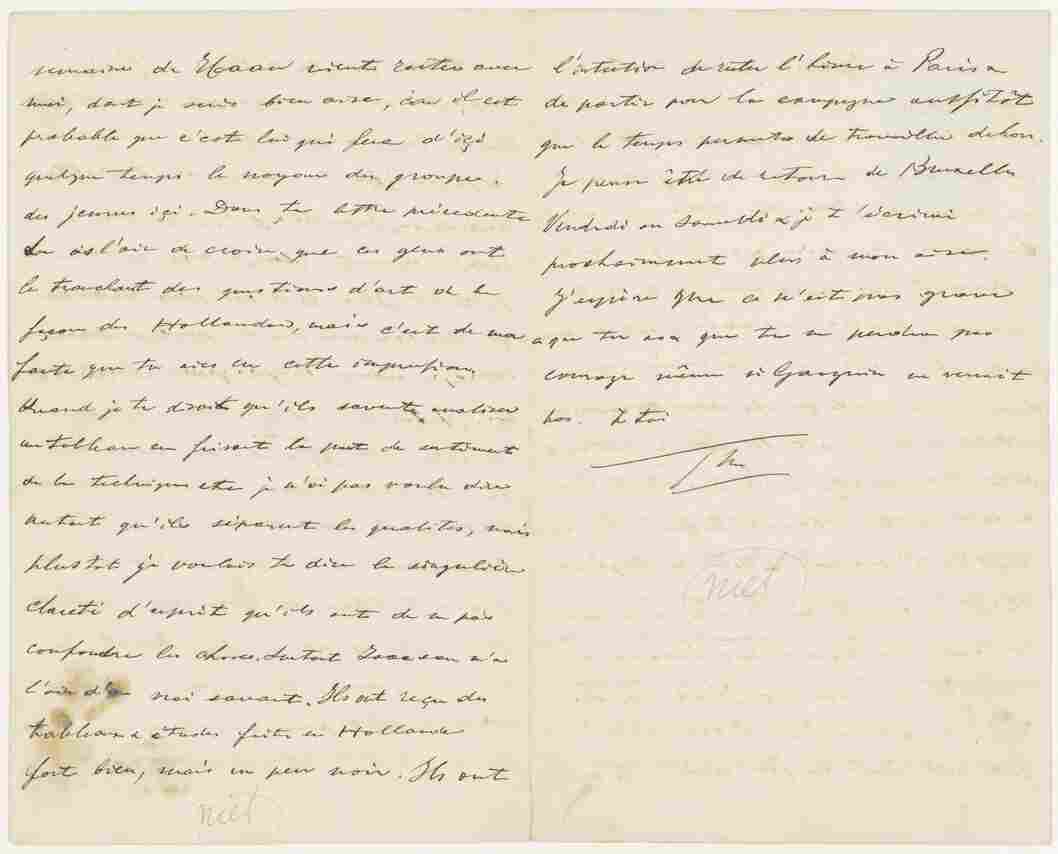 semaine de Haan vient rester avec
moi, dont je suis bien aise, car il est
probable que c'est lui qui fera d'ici
quelque temps le noyau du groupe
des jeunes ici. Dans ta lettre précédente
tu as l'air de croire que ces gens ont
le tranchant des questions d'art de la
façon des Hollandais, mais c'est de ma
faute que tu aies eu cette impression.
Quand je te disais qu'ils savent analiser
un tableau en faisant la part de sentiment
de la technique etc je n'ai pas voulu dire
autant qu'ils séparent les qualités, mais
plustot je voulais te dire la singulière
clareté d'esprit qu'ils ont de ne pas
confondre les choses. Surtout Isaacson a
l'air d'un vrai savant. Ils ont reçu des
tableaux & études faits en Hollande
fort bien, mais un peu noir. Ils ont
niet
l'intention de rester l'hiver à Paris &
de partir pour la campagne aussitôt
que le temps permettra de travailler dehors.
Je pense être de retour de Bruxelles
Vendredi ou Samedi & je t'écrirai
prochainement plus à mon aise.
J'espère que ce n'est pas grave
que tu as & que tu ne perdras pas
courage même si Gauguin ne venait
pas. à toi
Theo
niet